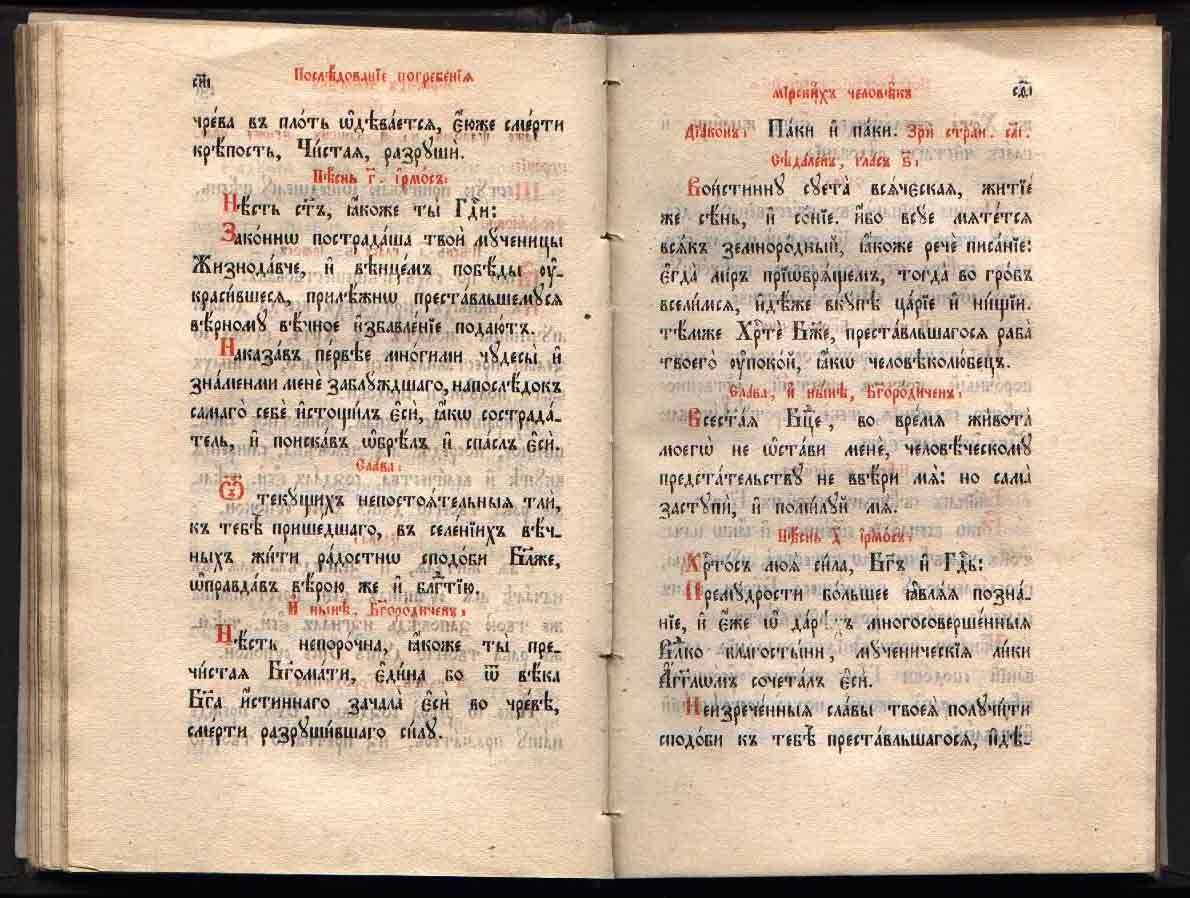 сиі
Послѣдованїе погребенїѧ
чре́ва въ пло́ть ѡ҆дѣва́етсѧ, є҆́юже сме́рти
крѣ́пость, Чи́стаѧ, разрꙋшѝ.
Пѣ́снь г҃. і҆рмо́съ:
Нѣ́сть ст҃ъ, ꙗ҆́коже ты̀ Гдⷭ҇и:
Зако́ннѡ пострада́ша твоѝ мꙋ́ченицы
Жизнода́вче, и҆ вѣнце́мъ побѣ́ды оу҆-
краси́вшесѧ, прилѣ́жнѡ преста́вльшемꙋсѧ
вѣ́рномꙋ вѣ́чное и҆збавле́нїе подаю́тъ.
Наказа́въ пе́рвѣе мно́гими чꙋдесы̀ и҆
зна́меньми менѐ заблꙋ́ждшаго, напослѣ́докъ
самаго̀ себѐ и҆стощи́лъ є҆сѝ, ꙗ҆́кѡ сострада́-
тель, и҆ поиска́въ ѡ҆брѣ́лъ и҆ спа́слъ є҆сѝ.
Сла́ва:
Ѿ текꙋ́щихъ непостоѧ́тельныѧ тлѝ,
къ тебѣ̀ прише́дшаго, въ селе́нїихъ вѣ́ч-
ныхъ жи́ти ра́достнѡ сподо́би Бл҃же,
ѡ҆правда́въ вѣ́рою же и҆ блгⷣтїю:
И҆ ны́нѣ, Бг҃оро́диченъ:
Нѣ́сть непоро́чна, ꙗ҆́коже ты̀ пре-
чи́стаѧ Бг҃ома́ти, є҆ди́на бо ѿ вѣ́ка
Бг҃а и҆́стиннаго зачала̀ є҆сѝ во чре́вѣ,
сме́рти разрꙋши́вшаго си́лꙋ.
мїрски́хъ человѣ́къ
сѳі
Дїа́конъ: Па́ки и҆ па́ки. Зрѝ стран. сма.
Сѣда́ленъ, гла́съ ѕ҃:
Вои́стиннꙋ сꙋета̀ всѧ́ческаѧ, житїе́
же сѣ́нь, и҆ со́нїе. и҆́бо всꙋ́е мѧте́тсѧ
всѧ́къ земноро́дный, ꙗ҆́коже речѐ писа́нїе:
є҆гда̀ мі́ръ прїѡбрѧ́щемъ, тогда̀ во гро́бъ
всели́мсѧ, и҆дѣ́же вкꙋ́пѣ ца́рїе и҆ ни́щїи.
тѣ́мже Хрⷭ҇тѐ Бж҃е, преста́вльшагосѧ раба̀
твоего̀ оу҆поко́й, ꙗ҆́кѡ человѣколю́бецъ.
Сла́ва, и҆ ны́нѣ, Бг҃оро́диченъ:
Всест҃а́ѧ Бцⷣе, во вре́мѧ живота̀
моегѡ̀ не ѡ҆ста́ви менѐ, человѣ́ческомꙋ
предста́тельствꙋ не ввѣ́ри мѧ̀: но сама̀
застꙋпѝ, и҆ поми́лꙋй мѧ̀.
Пѣ́снь д҃ і҆рмо́съ:
Хрⷭ҇то́съ моѧ̀ си́ла, Бг҃ъ и҆ Гдⷭ҇ь:
Премꙋ́дрости бо́льшее ꙗ҆влѧ́ѧ позна́-
нїе, и҆ є҆́же ѡ҆ дарѣ́хъ многосоверше́нныѧ
Влⷣко бла́гостыни, мꙋ́ченическїѧ ли́ки
А҆́гг҃лѡмъ сочета́лъ є҆сѝ.
Неизрече́нныѧ сла́вы твоеѧ̀ полꙋчи́ти
сподо́би къ тебѣ̀ преста́вльшагосѧ, и҆дѣ́-